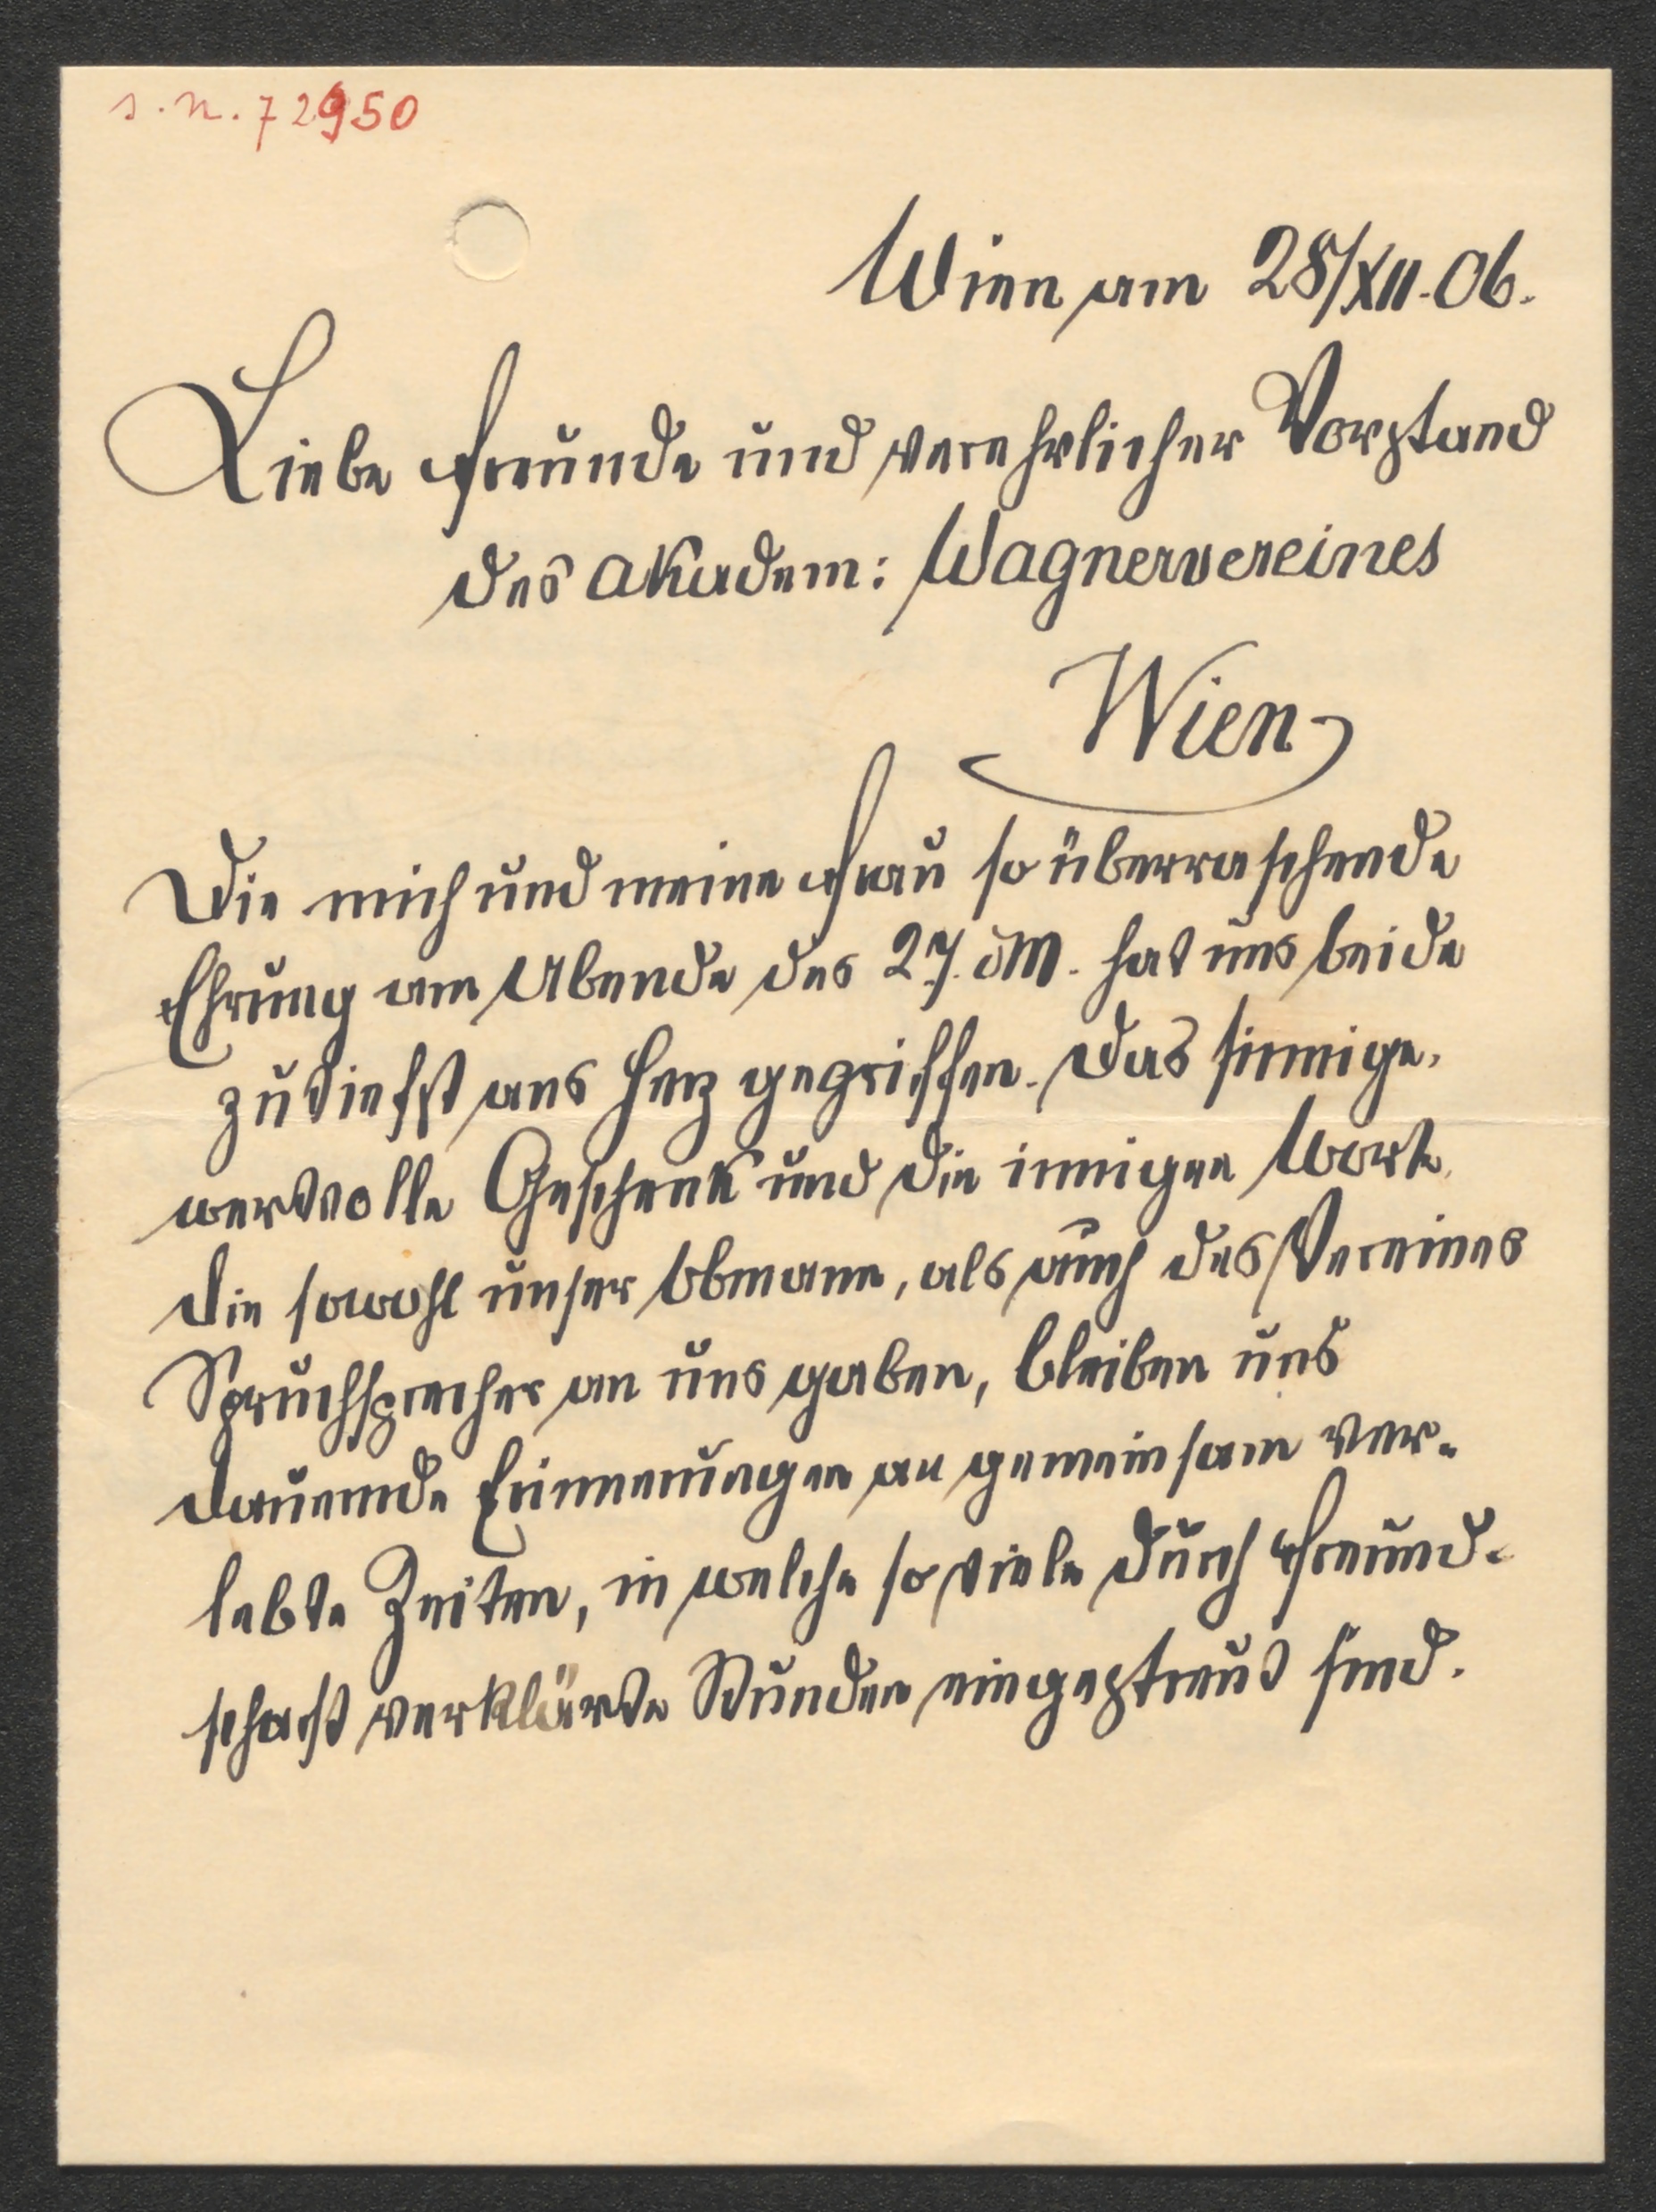 s. n. 72950
Wien am 28/XII. 06.
Liebe Freunde und verehrlicher Vorstand
des akadem: Wagnervereines
Wien
Die mich und meine Frau so überraschende
Ehrung am Abende des 27. d M. hat uns beide
zutiefst ans Herz gegriffen. Das sinnige,
wertvolle Geschenk und die innigen Worte,
die sowohl unser Obmann, als auch des Vereines
Spruchsprecher an uns gaben, bleiben uns
dauernde Erinnerungen an gemeinsam ver-
lebte Zeiten, in welche so viele durch Freund-
schaft verklärte Stunden eingestreut sind.